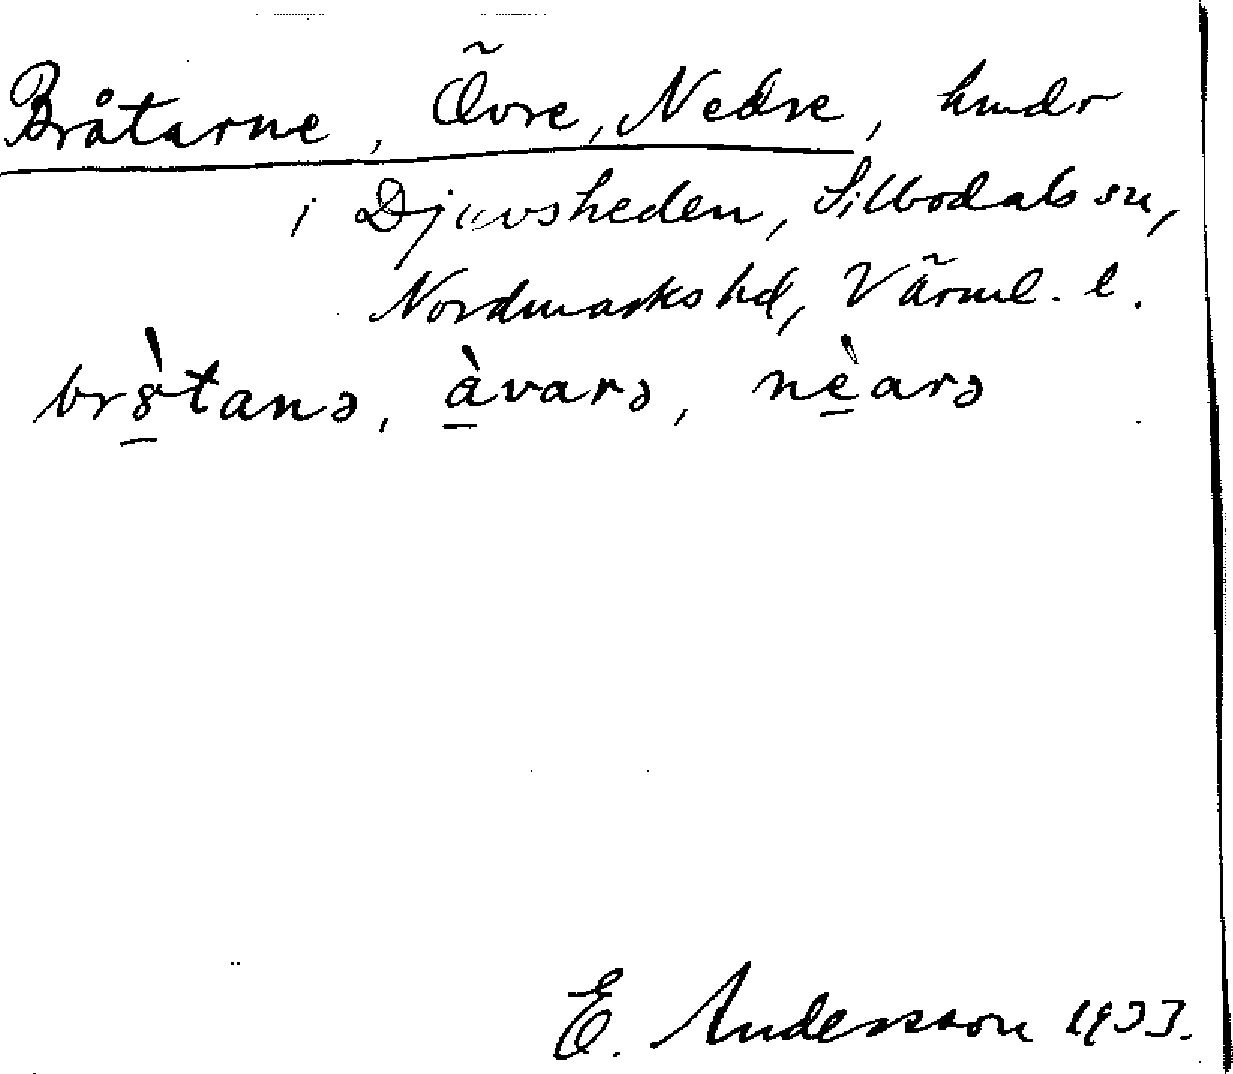 Bråtarne, Övre, Nedre, hmdr
i Djuvsheden, Silbodals sn,
Nordmarks hd, Värml. l.
br8̲̀tanə, à̲varə, nè̲arə
E. Andersson 1933.